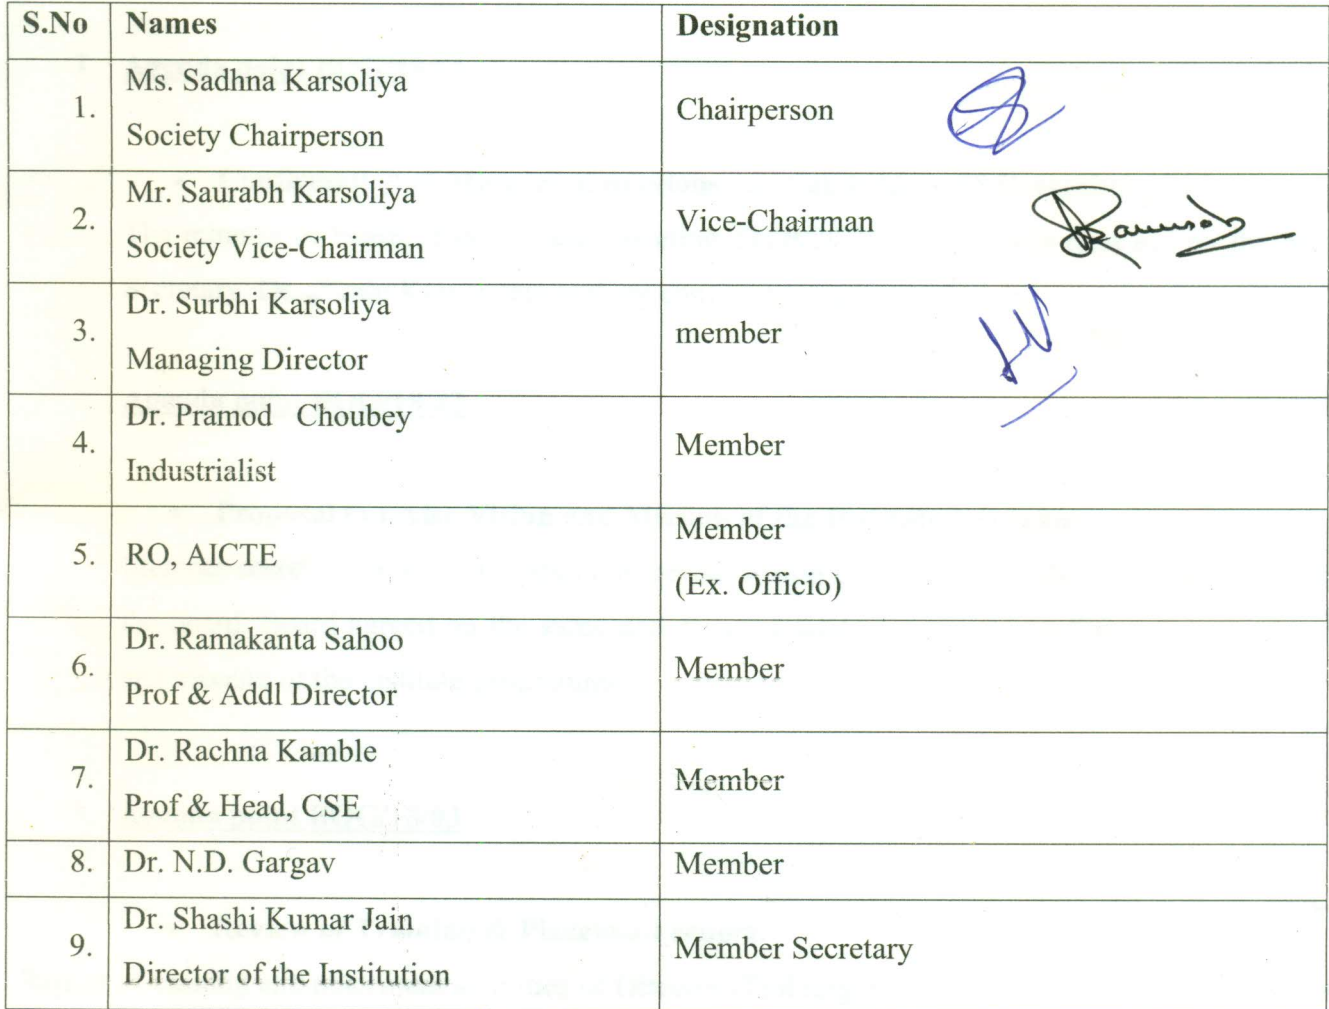 S.No Names Designation
1. Ms. Sadhna Karsoliya
Society Chairperson
Chairperson
2. Mr. Saurabh Karsoliya
Society Vice-Chairman
Vice-Chairman
3. Dr. Surbhi Karsoliya
Managing Director
member
4. Dr. Pramod Choubey
Industrialist
Member
5. RO, AICTE
Member
(Ex. Officio)
6. Dr. Ramakanta Sahoo
Prof & Addl Director
Member
7. Dr. Rachna Kamble
Prof & Head, CSE
Member
8. Dr. N.D. Gargav
Member
9. Dr. Shashi Kumar Jain
Director of the Institution
Member Secretary